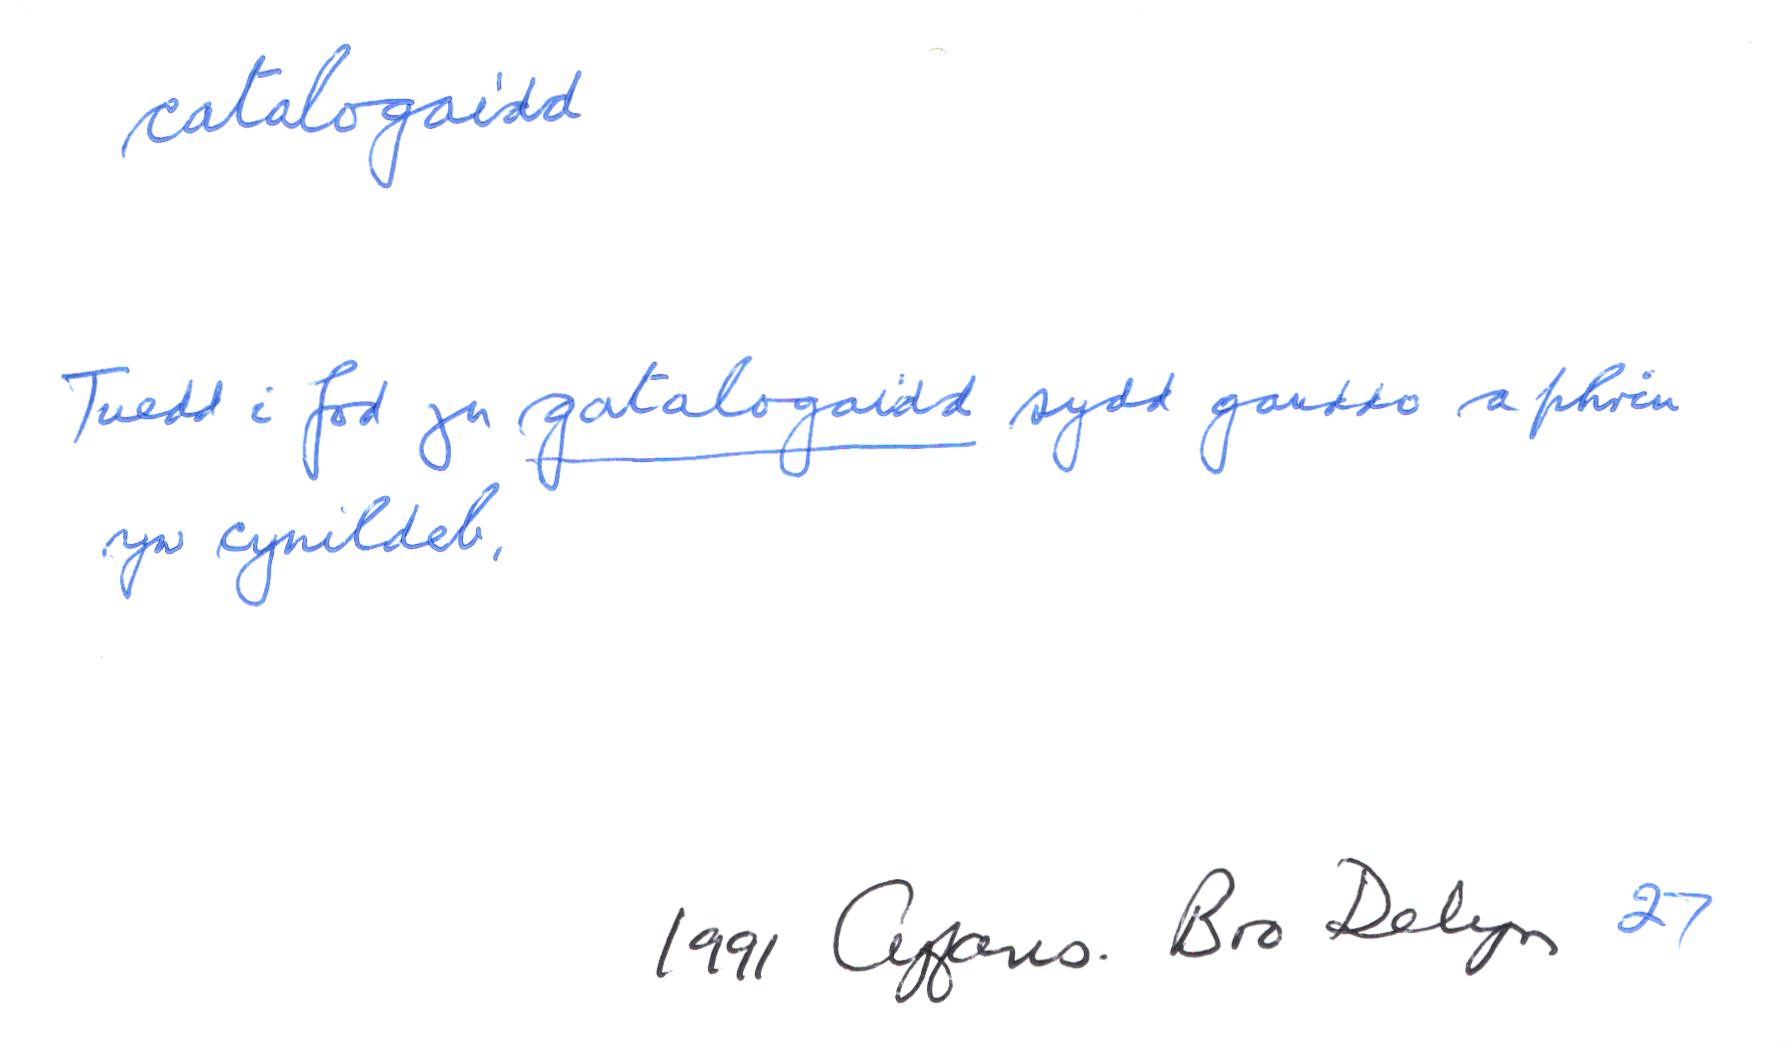 catalogaidd
Tuedd i fod yn gatalogaidd sydd ganddo a phrin
yw cynildeb.
1991 Cyfans. Bro Delyn 27